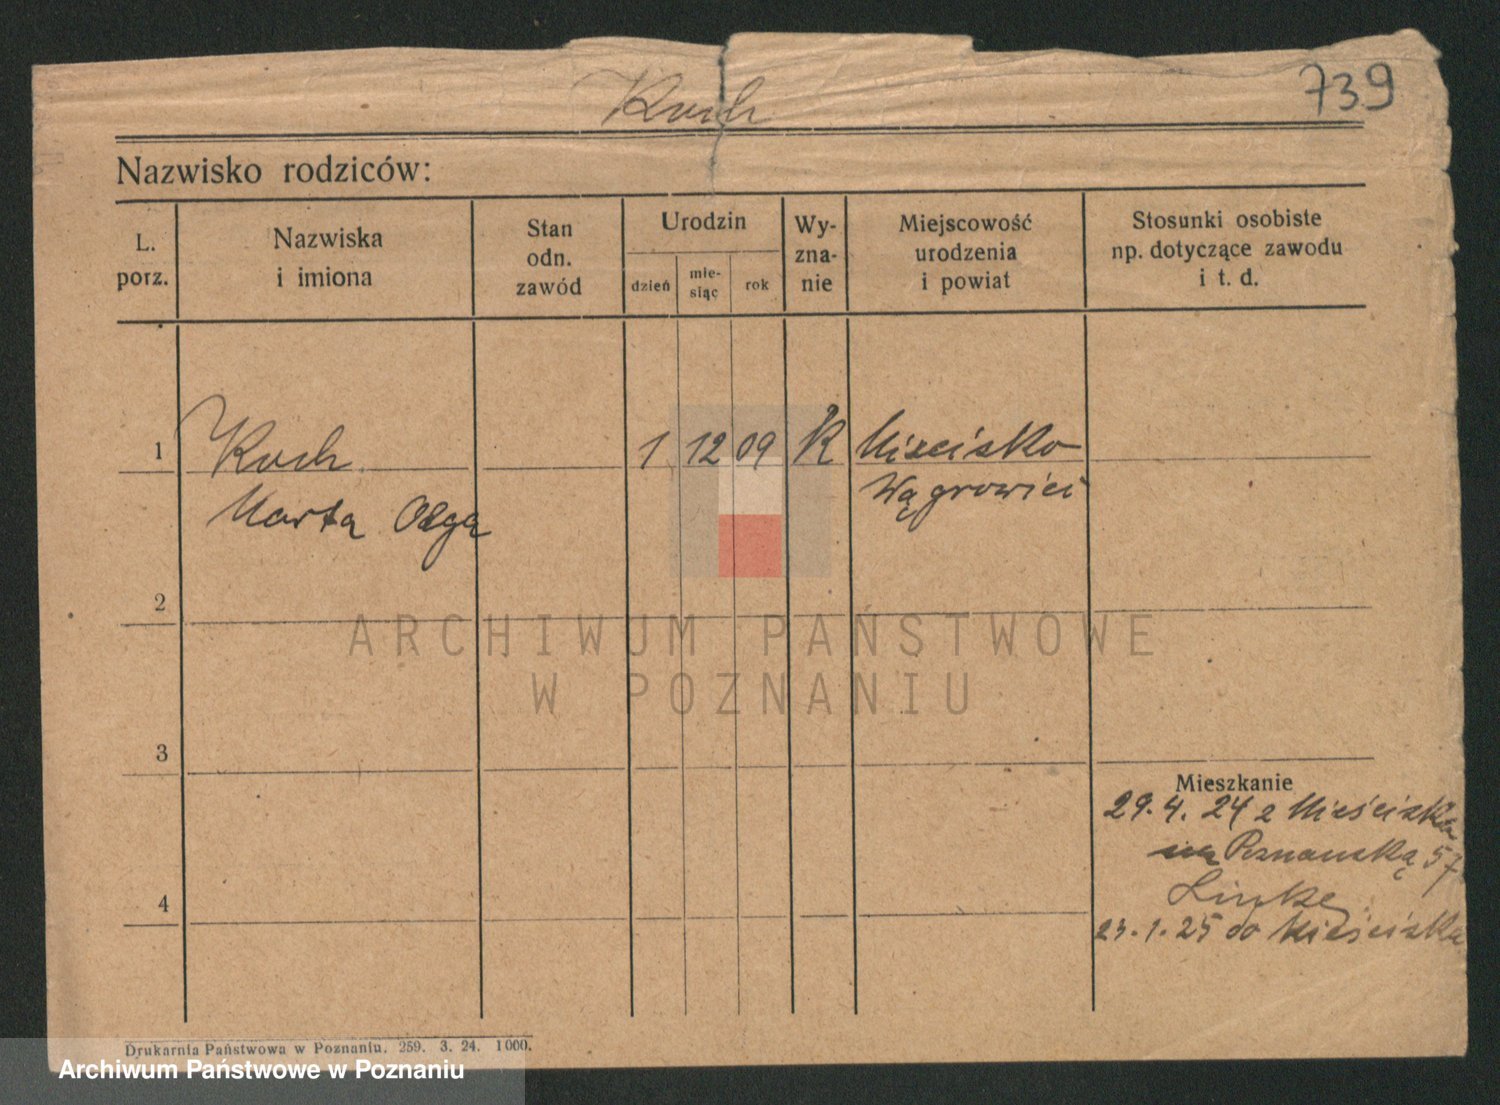 Koch
739
Nazwisko rodziców:
L. porz.
Nazwiska i imiona
Stan odn. zawód
Urodzin
dzień
mie-siąc
rok
Wy-zna-nie
Miejscowość urodzenia i powiat
Stosunki osobiste np. dotyczące zawodu i t. d.
1
Koch
1 12 09
K
Mieścisko
Marta Olga
Wągrowiec
2
ARCHIWUM PAŃSTWOWE
W POZNANIU
3
Mieszkanie
29.4.24 z Mieściska
na Poznańską 57
4
Linke
23.1.25 do Mieściska
Drukarnia Państwowa w Poznaniu. 259. 3. 24. 1000.
Archiwum Państwowe w Poznaniu